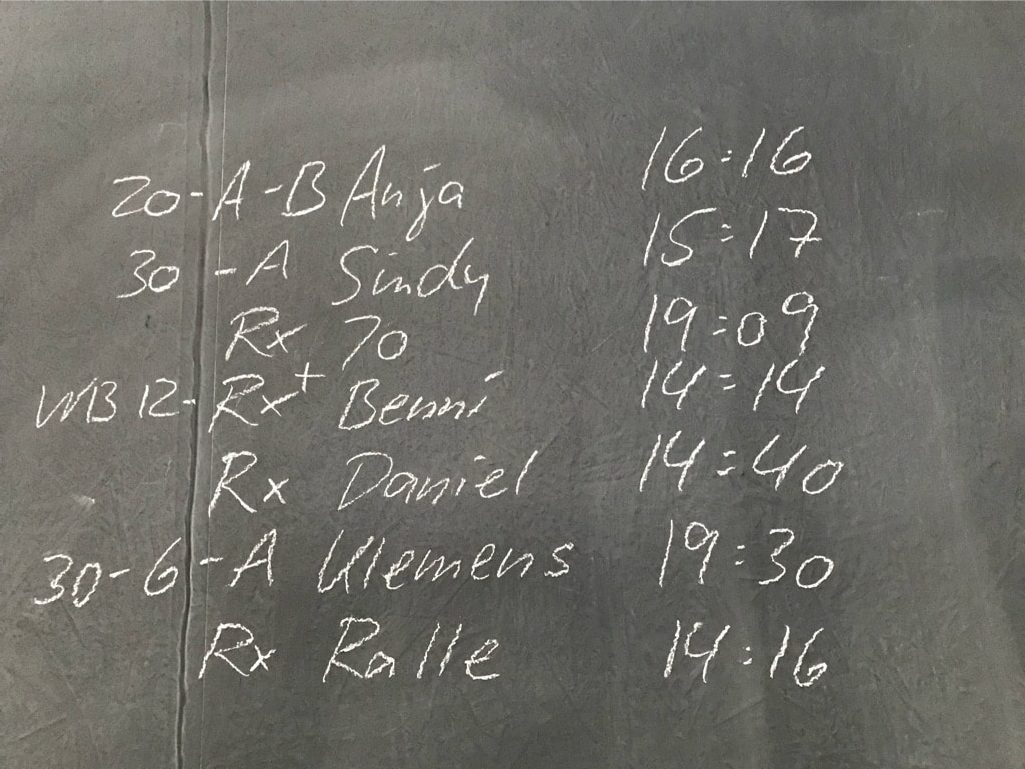 20-A-B Anja 16:16
30-A Sindy 15:17
Rx 70 19:09
WB 12-Rx+ Benni 14:14
Rx Daniel 14:40
30-6-A Klemens 19:30
Rx Ralle 14:16